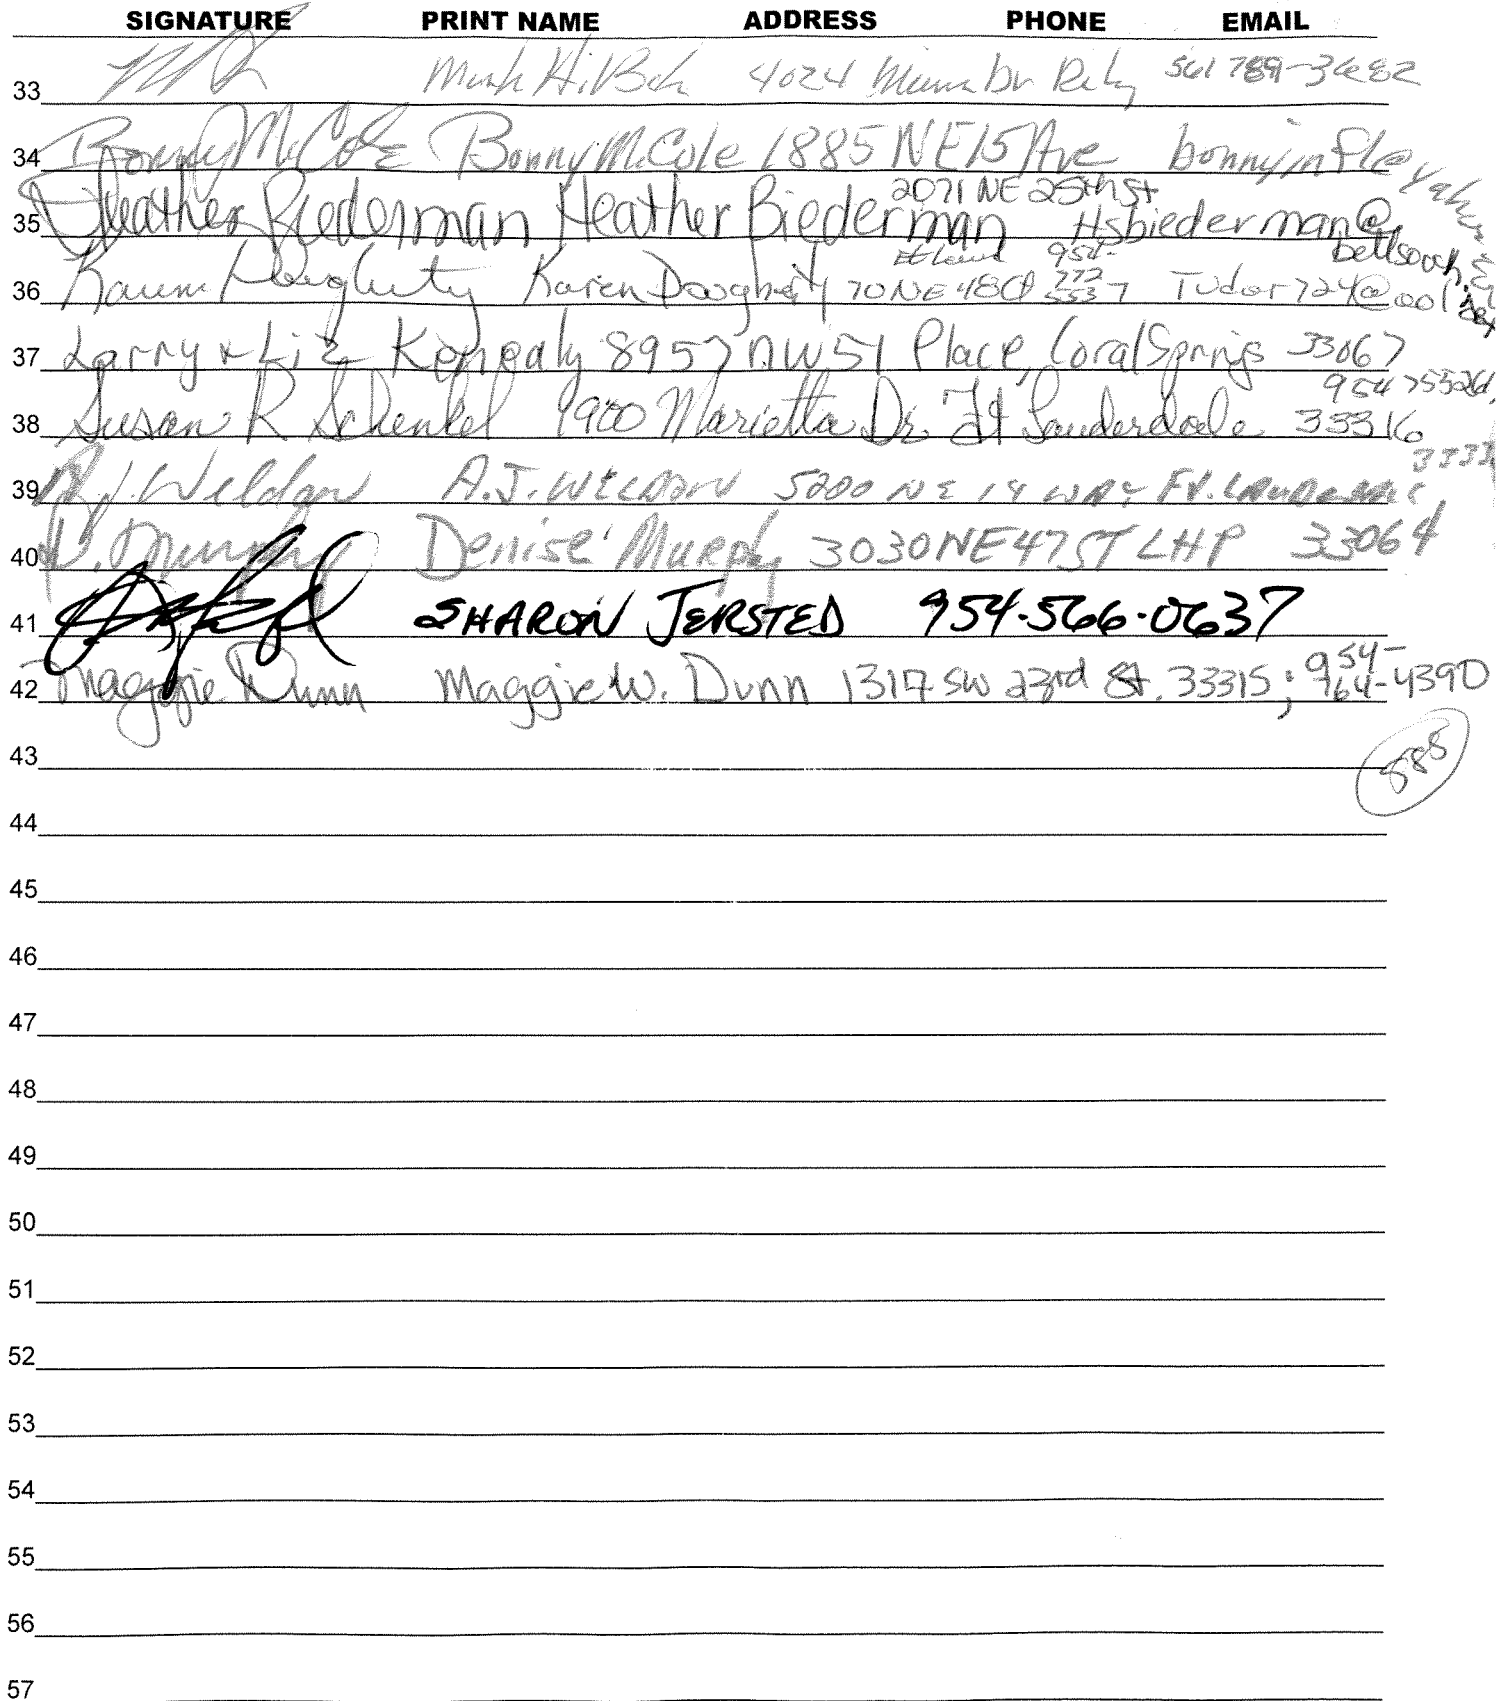 SIGNATURE PRINT NAME ADDRESS PHONE EMAIL
33 4024 Dr 561 789-3682
34 Bonny M. Cole Bonny M. Cole 1885 NE 15 Ave bonnyinfl@
35 Heather Biederman Heather Biederman 2071 NE 25th St Hsbiederman@
bellsouth.net
36 Karen Dougherty Karen Dougherty 70 NE 48 Ct 954- 772 5537 Tudor724@aol
37 Larry & Liz Kennealy 8957 NW 51 Place, Coral Springs 33067
38 Susan R Schenkel 1900 Marietta Dr. Ft Lauderdale 33316
39 A.J. Weldon A.J. WELDON 5200 NE 14 WAY FT. LAUDERDALE
40 D. Murphy Denise Murphy 3030 NE 47 ST LHP 33064
41 SHARON JERSTED 954-566-0637
42 Maggie Dunn Maggie W. Dunn 1317 SW 23rd St. 33315; 954- 764-4390
43
44
45
46
47
48
49
50
51
52
53
54
55
56
57